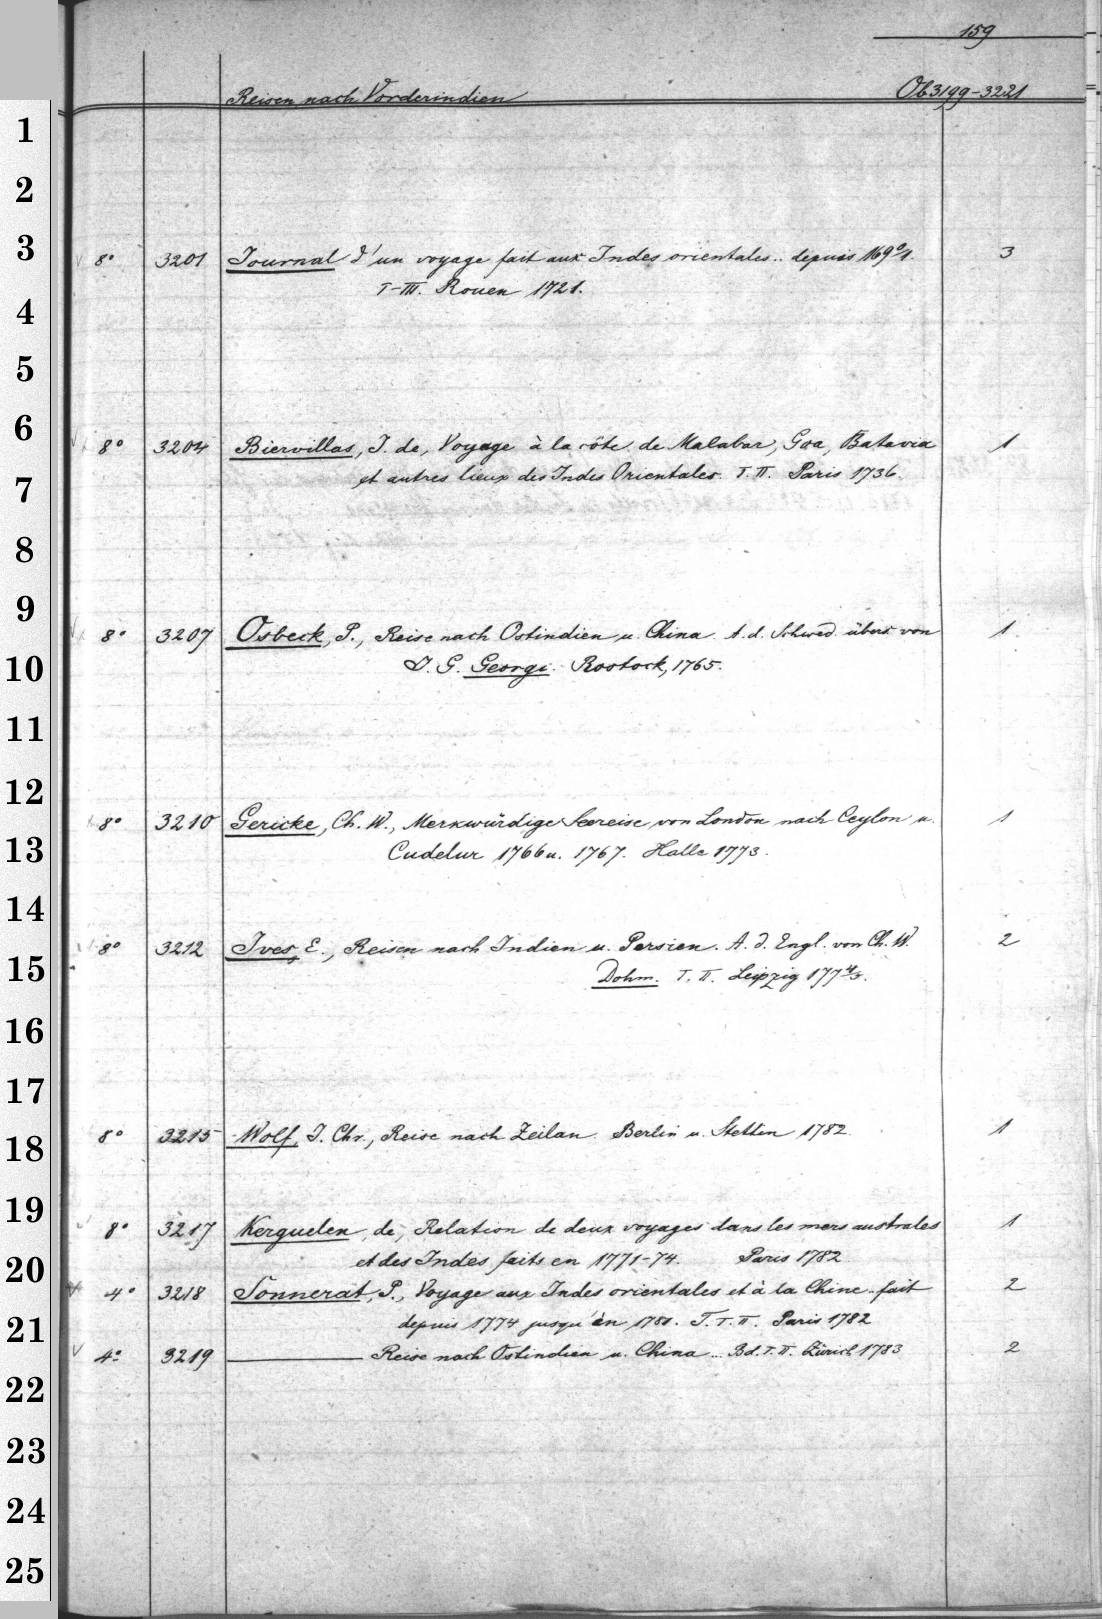 159
Reisen nach Vorderindien Ob 3199-3221
1
2
3
8° 3201 Journal d'un voyage fait aux Indes orientales .. depuis 169 0/1. 3
T-III. Rouen 1721.
4
5
6
8° 3204 Biervillas, I. de, Voyage à la côte de Malabar, Goa, Batavia 1
et autres lieux des Indes Orientales. T.II. Paris 1736.
7
8
9
8° 3207 Osbeck, P., Reise nach Ostindien u. China. A. d. Schwed. übers. von 1
J. G. Georgi. Rostock, 1765.
10
11
12
8° 3210 Gericke, Ch. W., Merkwürdige Seereise von London nach Ceylon u. 1
Cudelur 1766 u. 1767. Halle 1773.
13
14
8° 3212 Ives, E., Reisen nach Indien u. Persien. A. d. Engl. von Ch. W. 2
Dohm. T. II. Leipzig 177 4/5.
15
16
17
8° 3215 Wolf, J. Chr., Reise nach Zeilan. Berlin u. Stettin 1782. 1
18
19
8° 3217 Kerguelen, de, Relation de deux voyages dans les mers australes 1
et des Indes faits en 1771-74. Paris 1782
20
4° 3218 Sonnerat, P., Voyage aux Indes orientales et à la Chine .. fait 2
depuis 1774 jusqu'en 1781. T. I. II. Paris 1782
21
4° 3219 ——— Reise nach Ostindien u. China ... Bd. I. II. Zürich 1783 2
22
23
24
25